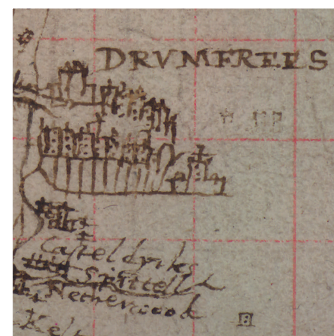 DRVMFREES
Casteldyks
Spittell
Netherwood
Kelt